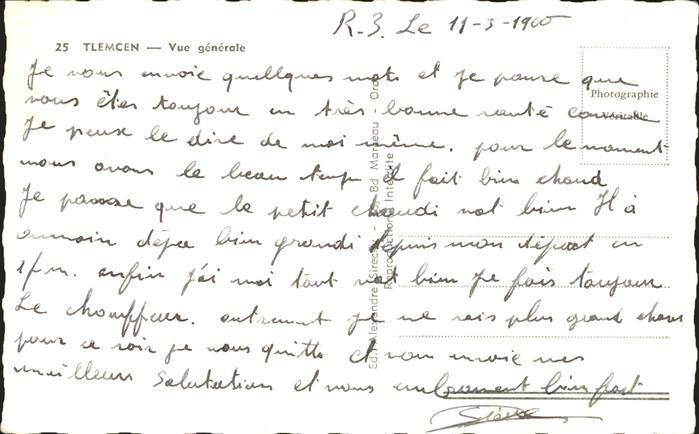 R.3. Le 11-3-1960
25 TLEMCEN — Vue générale
Je vous envoie quellques mots et je panse que
vous êtes toujour en très bonne santé comme
Je peux le dire de moi même. pour le moment
nous avons le beau temp il fait bien chaud
Je pansse que le petit va bien Il à
déja bien grandi depuis mon départ en
enfin j'ai moi tout va bien Je fais toujour
Le chauffeur. autrement je ne vois plus grand chose
pour ce soir je vous quitte et vous envoie mes
meilleurs Salutations et vous embrassent bien fort
Photographie
Véritable
Ed. Alexandre Sirecky - Bd Marceau - Oran
Reproduction Interdite